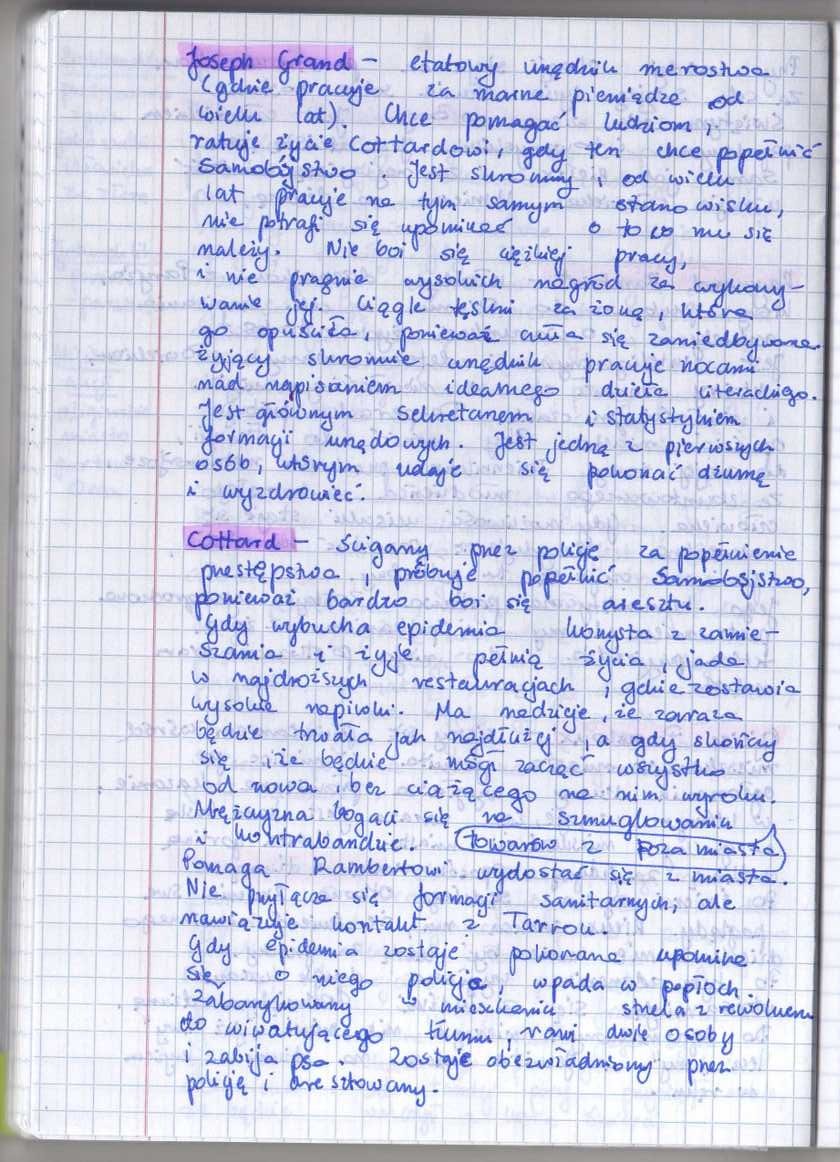 Joseph Grand – etatowy urzędnik merostwa
(gdzie pracuje za marne pieniądze od
wielu lat). Chce pomagać ludziom,
ratuje życie Cottardowi, gdy ten chce popełnić
samobójstwo. Jest skromny, od wielu
lat pracuje na tym samym stanowisku,
nie potrafi się upominać o to co mu się
należy. Nie boi się ciężkiej pracy,
i nie pragnie wysokich nagród za wykony-
wanie jej. Ciągle tęskni za żoną, która
go opuściła, ponieważ czuła się zaniedbywana.
Żyjący skromnie urzędnik pracuje nocami
nad napisaniem idealnego dzieła literackiego.
Jest głównym sekretarzem i statystykiem
formacji urzędowych. Jest jedną z pierwszych
osób, którym udaje się pokonać dżumę
i wyzdrowieć.
Cottard – ścigany przez policję za popełnienie
przestępstwa, próbuje popełnić samobójstwo,
ponieważ bardzo boi się aresztu.
Gdy wybucha epidemia korzysta z zamie-
szania i żyje pełnią życia, jada
w najdroższych restauracjach, gdzie zostawia
wysokie napiwki. Ma nadzieję, że zaraza
będzie trwała jak najdłużej, a gdy skończy
się, że będzie mógł zacząć wszystko
od nowa, bez ciążącego na nim wyroku.
Mężczyzna bogaci się na szmuglowaniu
i kontrabandzie. (towarów z poza miasta)
Pomaga Rambertowi wydostać się z miasta.
Nie przyłącza się formacji sanitarnych, ale
nawiązuje kontakt z Tarrou.
Gdy epidemia zostaje pokonana upomina
się o niego policja, wpada w popłoch.
Zabarykadowany w mieszkaniu strzela z rewolweru
do wiwatującego tłumu, rani dwie osoby
i zabija psa. Zostaje obezwładniony przez
policję i aresztowany.